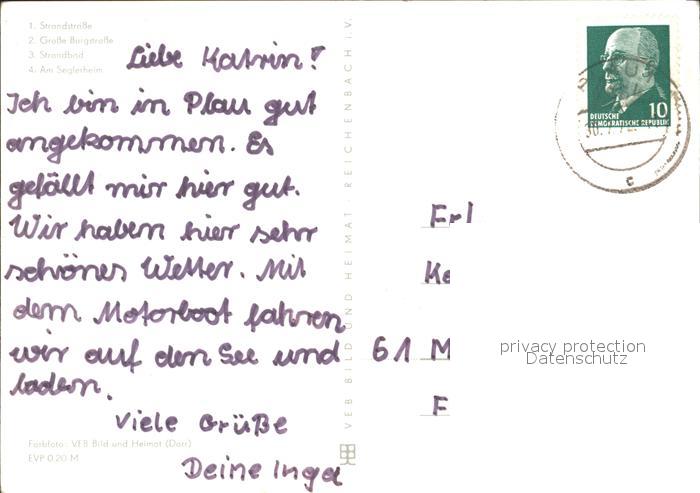 1. Strandstraße
2. Große Burgstraße
3. Strandbad
4. Am Seglerheim
Liebe Katrin!
Ich bin in Plau gut
angekommen. Es
gefällt mir hier gut.
Wir haben hier sehr
schönes Wetter. Mit
dem Motorboot fahren
wir auf den See und
baden.
Viele Grüße
Deine Inga
Farbfoto: VEB Bild und Heimat (Darr)
EVP 0.20 M
VEB BILD UND HEIMAT · REICHENBACH i. V.
DEUTSCHE
DEMOKRATISCHE REPUBLIK
10
c
Frl
Ka
61 M
F
privacy protection
Datenschutz